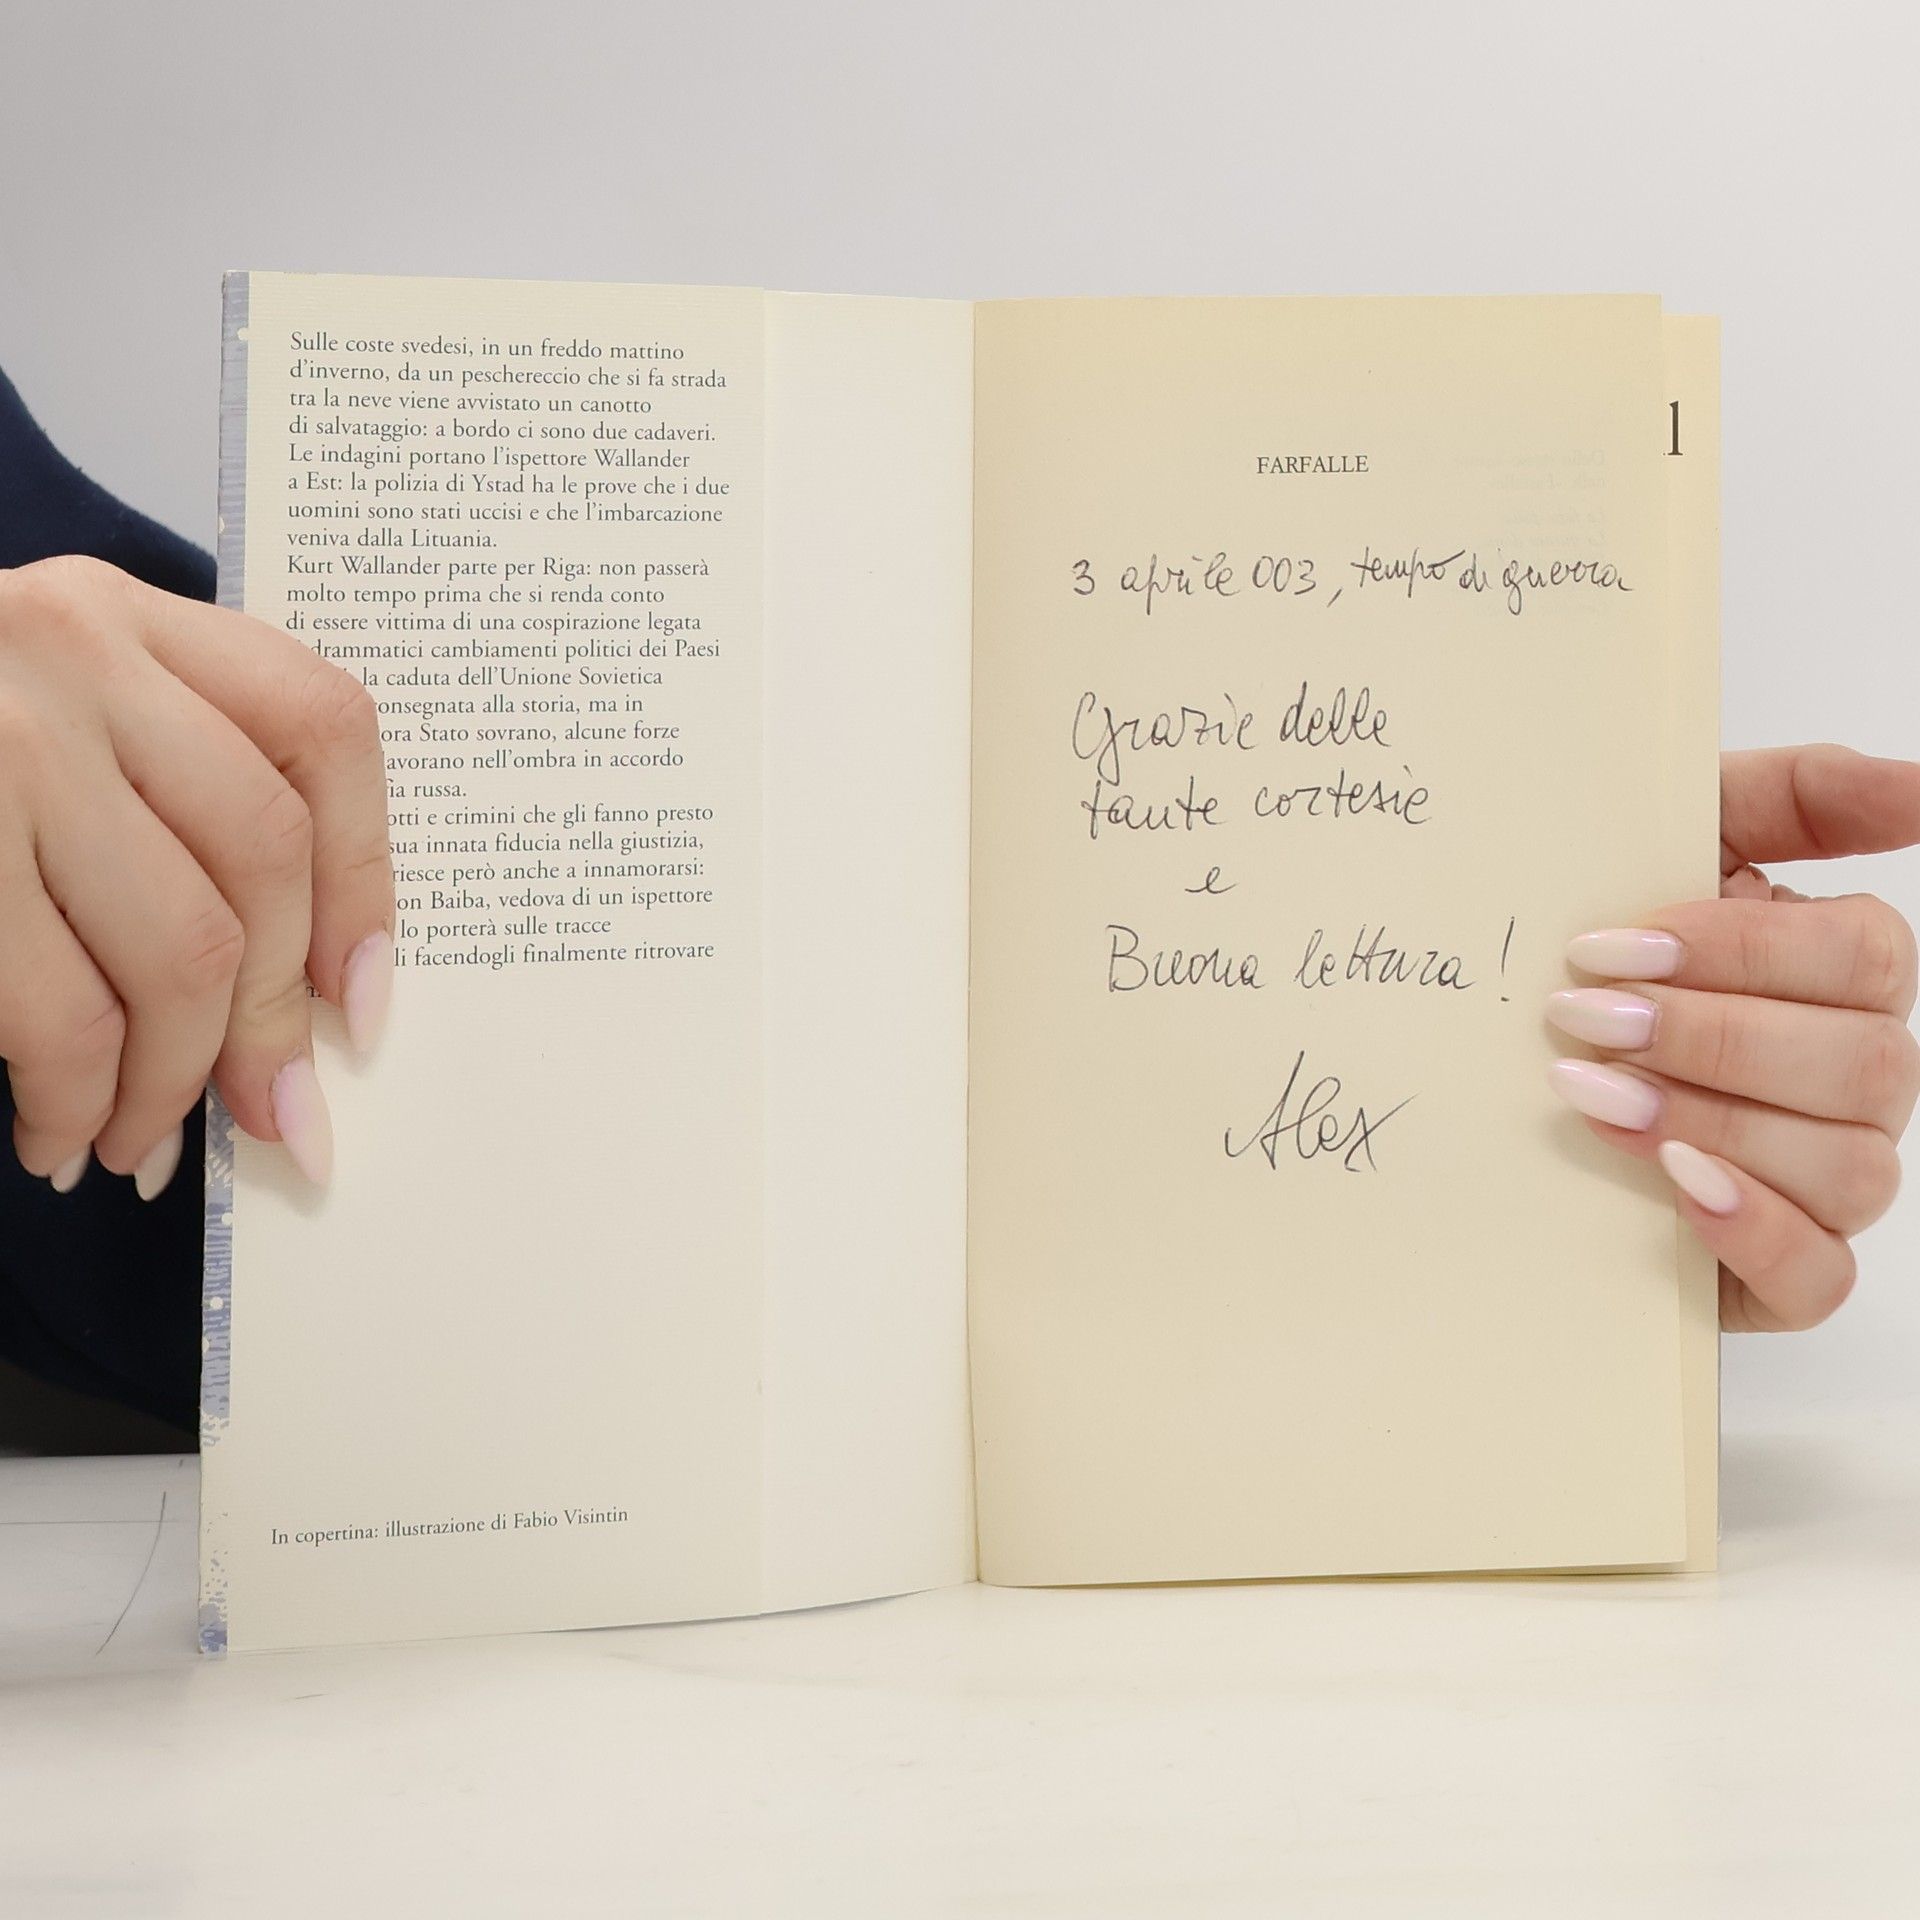 Sulle coste svedesi, in un freddo mattino
d'inverno, da un peschereccio che si fa strada
tra la neve viene avvistato un canotto
di salvataggio: a bordo ci sono due cadaveri.
Le indagini portano l'ispettore Wallander
a Est: la polizia di Ystad ha le prove che i due
uomini sono stati uccisi e che l'imbarcazione
veniva dalla Lituania.
Kurt Wallander parte per Riga: non passerà
molto tempo prima che si renda conto
di essere vittima di una cospirazione legata
drammatici cambiamenti politici dei Paesi
la caduta dell'Unione Sovietica
onsegnata alla storia, ma in
ora Stato sovrano, alcune forze
avorano nell'ombra in accordo
fia russa.
otti e crimini che gli fanno presto
sua innata fiducia nella giustizia,
riesce però anche a innamorarsi:
on Baiba, vedova di un ispettore
lo porterà sulle tracce
li facendogli finalmente ritrovare
In copertina: illustrazione di Fabio Visintin
FARFALLE
3 aprile 003, tempo di guerra
Grazie delle
tante cortesie
e
Buona lettura!
Alex
l